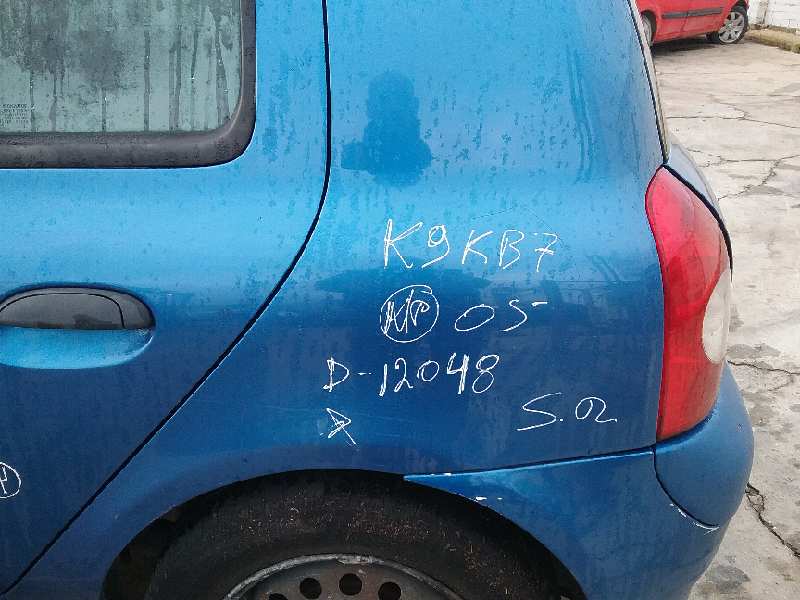 K9KB7
05
D-12048
S.02